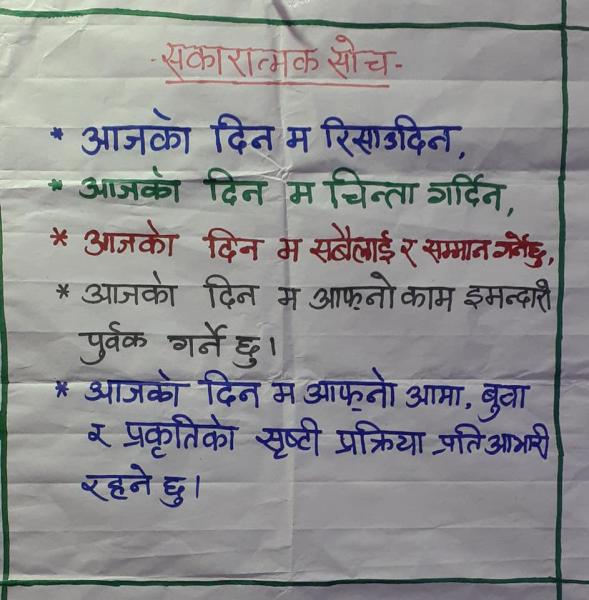 -सकारात्मक सोच-
* आजको दिन म रिसाउदिन,
* आजको दिन म चिन्ता गर्दिन,
* आजको दिन म सबैलाई र सम्मान गर्नेछु,
* आजको दिन म आफ्नो काम इमन्दारी
पुर्वक गर्ने छु।
* आजको दिन म आफ्नो आमा, बुवा
र प्रकृतिको सृष्टी प्रक्रिया प्रति आभारी
रहने छु।